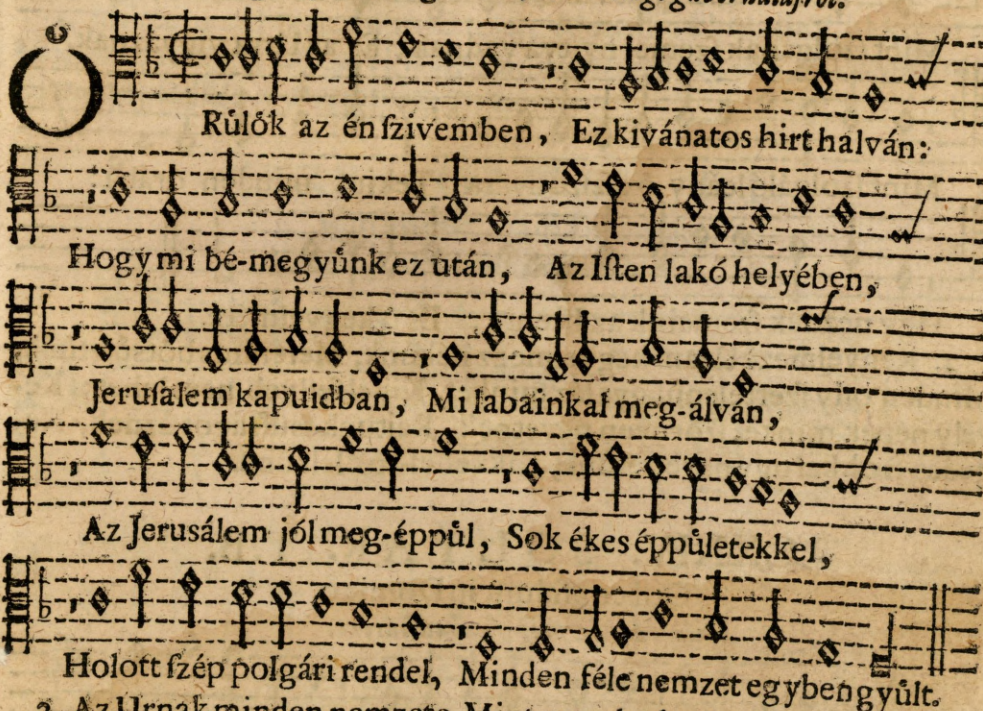 Ö
Růlők az én ſzivemben, Ez kivánatos hirt halván:
Hogy mi bé-megyůnk ez után, Az Iſten lakó helyében,
Jeruſalem kapuidban, Mi labainkal meg-álván,
Az Jerusálem jól meg-éppůl, Sok ékes éppůletekkel,
Holott ſzép polgári rendel, Minden féle nemzet egyben gyůlt.
2. Az Urnak minden nemzete